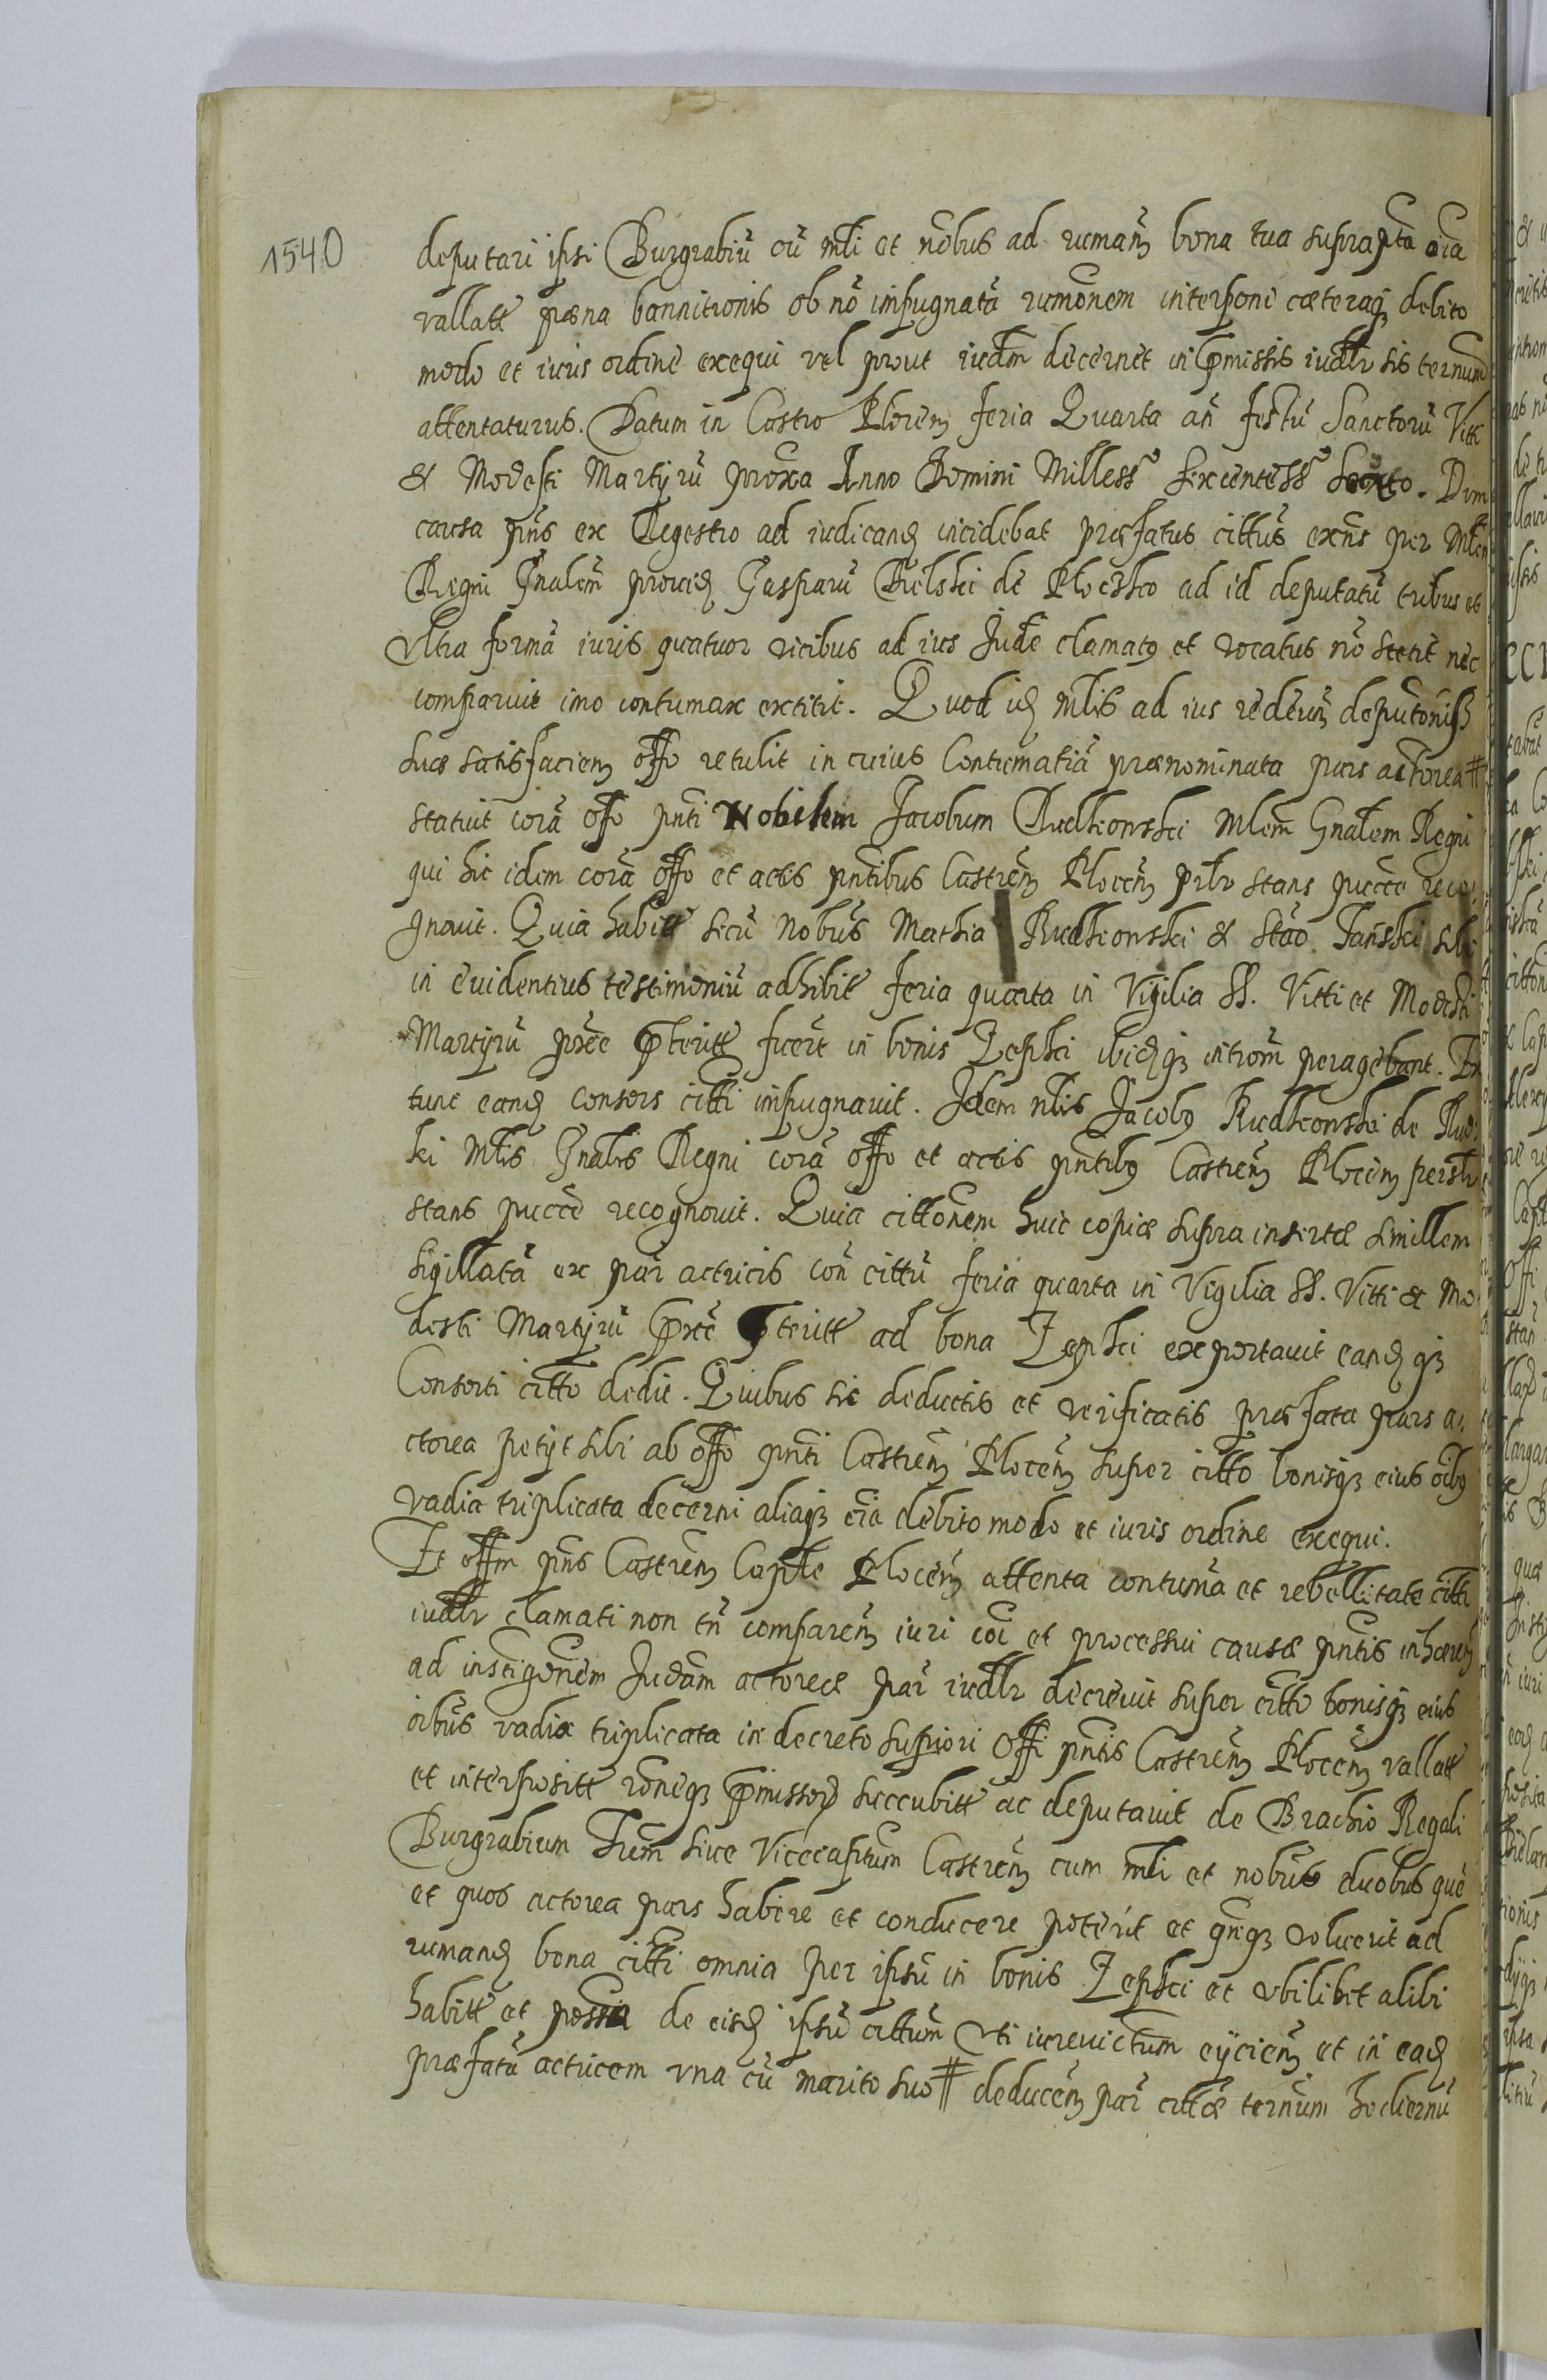 1540
deputari ipsi Burgrabiū cū mli et nobus ad rumañ bona tua suprapta oīa
vallatt pœna bannitionis ob nō impugnatā rumōnem interponi cæteraqȝ debito
modo et iuris ordine exequi vel prout iudm decernet in pmissis iudlr sis ternum
attentaturus. Datum in Castro Plocen feria Quarta an festū Sanctorū Viti
& Modesti Martyrū proxa Anno Domini Millessº sexcentessº sexto. Dum
causa pns ex Regestro ad iudicand incidebat præfatus cittus exns per Mlem
Regni Gnalem provid Gasparū Bielski de Ploczko ad id deputatū tribus et
Vltra formā iuris quatuor vicibus ad ius Jude clamatq et vocatus nō stetit nec
comparuit imo contumax extitit. Quod id mlis ad ius redeun deputōnisqȝ
suæ satisfacien offo retulit in cuius Contumatiā prænominata pars actorea #
statuit corā offo pnti Nobilem Jacobum Rudkowski Mlem Gnalem Regni
qui hic idem corā offo et actis pntibus Castren Plocen prlr stans pucce reco-
gnovit. Quia habitt secū Nobus Mathia Rudkowski & Stāo Tański sibi
in evidentius testimoniū adhibit feria quarta in Vigilia SS. Vitti et Modesti
Martyrū proxe pteritt fuert in bonis Zepki ibidqȝ introm peragebant. Ex
tunc eand consors citti impugnavit. Idem nlis Jacobq Rudkowski de Rud-
ki Mlis Gnalis Regni corā offo et actis pntibq Castren Plocen persolr
stans pucce recognovit. Quia cittōnem huic copiæ supra insertæ similem
sigillatā ex par actricis con cittū feria quarta in Vigilia SS. Vitti & Mo-
desti Martyrū pxe pteritt ad bona Zepki exportavit eand qȝ
Consorti citto dedit. Quibus sic deductis et verificatis præfata pars a-
ctorea petijt sibi ab offo pnti Castren Plocen super citto bonisqȝ eius oibq
vadia triplicata decerni aliaqȝ oīa debito modo et iuris ordine exequi.
Et offm pns Castren Capitle Plocen attenta contuma et rebellitate citti
iudlr clamati non tn comparen iuri coi et processui causæ pntis inhæren
ad instigōnem Judam actoreæ par iudlr decrevit super citto bonisqȝ eius
oibus vadia triplicata in decreto supiori Offi pntis Castren Plocen vallatt
et interpositt rōneqȝ pmissor succubitt ac deputavit de Brachio Regali
Burgrabium Trum sive Vicecapitum Castren cum mli et nobus duobus que
et quos actorea pars habere et conducere poterit et qnqȝ voluerit ad
rumand bona citti omnia per ipsū in bonis Zepki et vbilibet alibi
habitt et possa de eisd ipsū cittum Vti iurevictum eijcien et in ead
præfatā actricem vna cū marito suo # deducen par cittæ ternum hodiernū